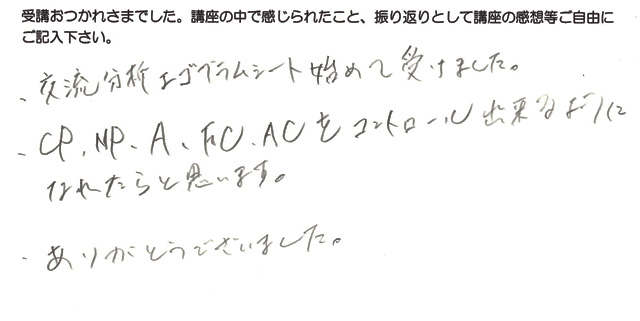 受講おつかれさまでした。講座の中で感じられたこと、振り返りとして講座の感想等ご自由に
ご記入下さい。
、交流分析エゴグラムシート始めて受けました。
、CP、NP、A、FC、ACをコントロール出来るように
なれたらと思います。
・ありがとうございました。